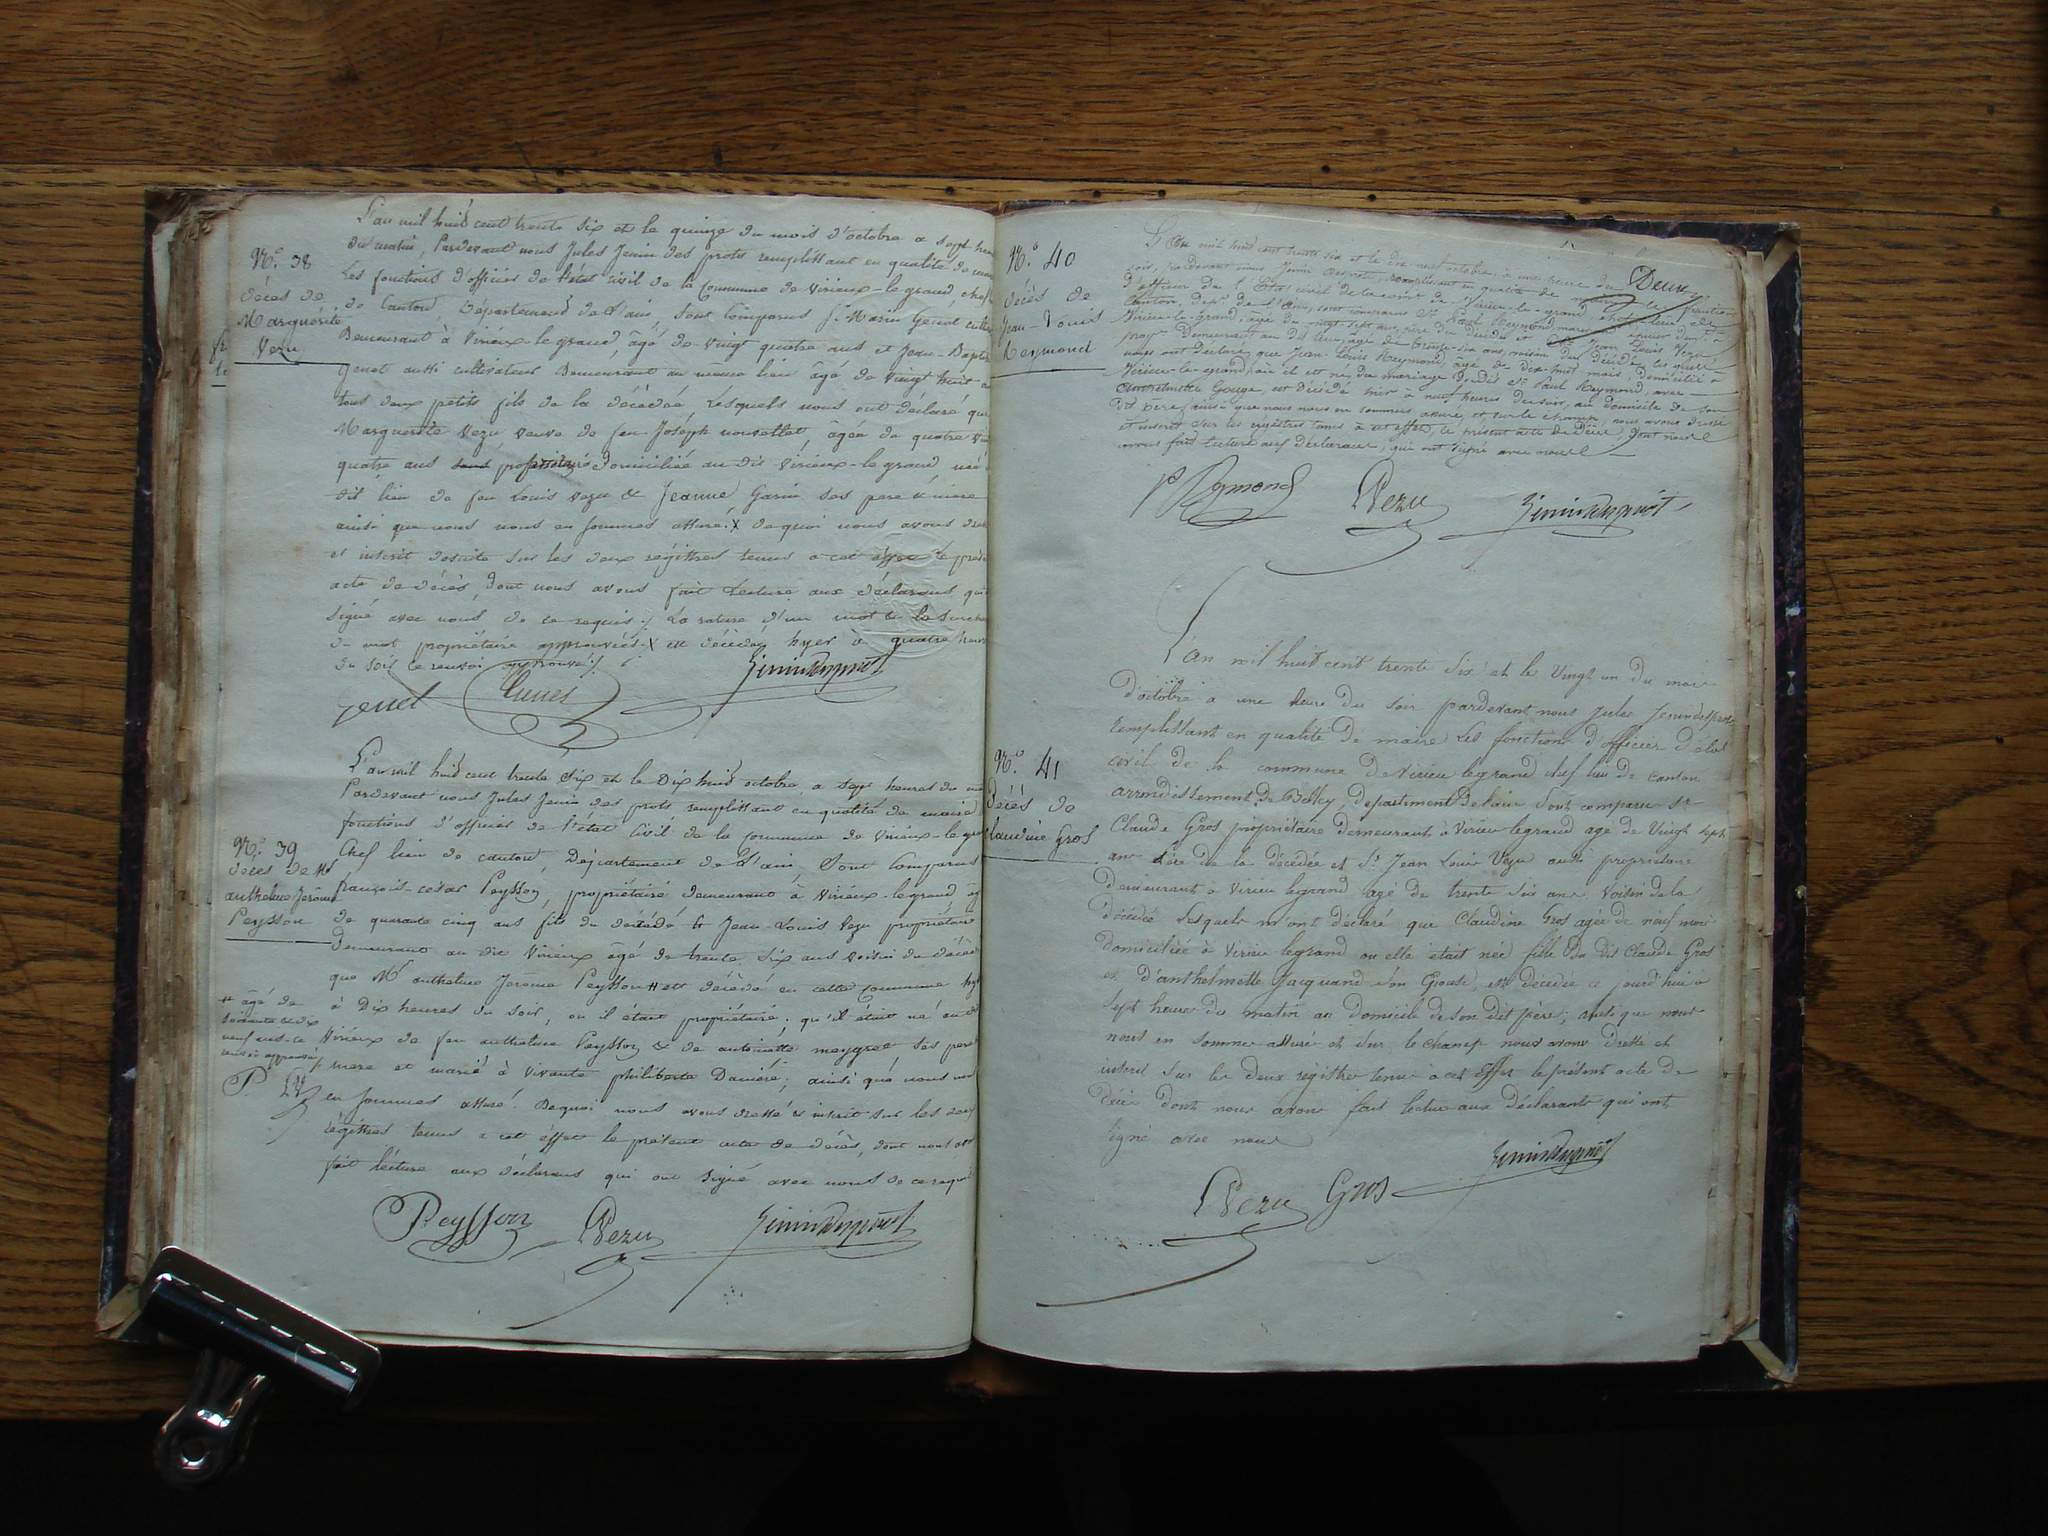 L'an mil huit cent trente six et le quinze du mois d'octobre a sept heu
du matin, Pardevant nous Jules Jenin des prots remplissant en qualité de mair
Les fonctions d'officier de l'état civil de la Commune de Virieux-le-grand chef
de Canton, Département de L'ain, Sont Comparus Sr. Marin Genet culti
Demeurant à Virieux-le-grand, âgé de vingt quatre ans et Jean-Bapti
Genet aussi cultivateur Demeurant au meme lieu âgé de vingt huit a
tous deux petits fils de la décédée, Lesquels nous ont déclaré que
Marguerite Vezu veuve de feu Joseph nouvellet, âgée de quatre vin
quatre ans propriétaire Domiciliée au dit Virieux-le-grand née
dit lieu de feu Louis vezu & Jeanne Garin ses pere & mere
ainsi que nous nous en sommes assuré. X de quoi nous avons dres
et inscrit desuite sur les deux régistres tenus a cet effet le prés
acte de décès, Dont nous avons fait Lecture aux déclarans qui
signé avec nous de ce requis ./. La rature d'un mot & la Surcha
du mot propriétaire approuvés. X est décédée hyer à quatre heures
du soir ce renvoi approuvé ./.
Nº. 38
décès de
Marguerite
Vezu
genet Genet Jenindesprôst
L'an mil huit cent trente Six et le Dix huit octobre, a sept heures du ma
Pardevant nous Jules Jenin des prots remplissant en qualité de maire
fonctions d'officier de l'état Civil de la Commune de Virieux-le-gra
Chef lieu de canton, Département de L'ain, Sont Comparus
françois-césar Peysson, propriétaire demeurant à Virieux-le-grand âg
de quarante cinq ans fils du décédé & Jean-Louis Vezu propriétaire
Demeurant au dit Virieux âgé de trente Six ans voisin du décéd
que Mr anthelme Jérome Peysson # est décédé en cette commune hye
à Dix heures du soir, ou il était propriétaire; qu'il était né au d
Virieux de feu anthelme Peysson & de antoinette meygret ses pere
mere et marié à vivante philiberte Daniéré; ainsi que nous nous
en sommes assuré. Dequoi nous avons dressé & inscrit sur les deux
régistres tenus a cet effet le présent acte de décès, dont nous av
fait lécture aux déclarans qui ont signé avec nous de ce requis
Nº. 39
décès de Mr
anthelme Jérôme
Peysson
# âgé de
soixante & dix
neuf ans-ce
renvoi approuvé
P. LV
Peysson LVezu Jenindesprôst
Nº. 40
Décès de
Jean-Louis
Reymond
L'an mil huit cent trente six et le dix neuf octobre, à une heure du
soir, pardevant nous Jenin desprôts, remplissant en qualité de maire les fonctions
d'officier de l'Etat civil de la com. de Virieu-le-grand chef-lieu de
Canton, dépt. de l'Ain, sont comparus Sr. Paul Reymond, demt. à
Virieu-le-grand, âgé de vingt sept ans, père du décédé et Sr. Jean Louis Vezu
propr. demeurant au dit lieu, âgé de trente-six ans, voisin du décédé, lesquels
nous ont déclaré, que Jean-Louis Reymond, âgé de dix-huit mois, domicilié à
Virieu-le-grand, où il est né du mariage dudit Sr. Paul Reymond, avec
Anthelmette Gouge, est décédé hier à neuf heures du soir, au domicile de son
dit père, ainsi que nous nous en sommes assuré, et sur le champ, nous avons dressé
et inscrit sur les registres tenus à cet effet, le présent acte de Décès, dont nous
avons fait lecture aux déclarans, qui ont signé avec nous
P Reymond LVezu Jenindesprôst
L'an mil huit cent trente Six et le Vingt un du mois
d'octobre à une heure du soir pardevant nous Jules Jenindesprots
remplissant en qualité de maire les fonctions d'officier d'état
civil de la commune de Virieu legrand chef lieu de canton
arrondissement de Belley, département de l'ain Sont comparu Sr
Claude Gros propriétaire demeurant à Virieu legrand agé de Vingt sept
ans père de la décédée et Sr. Jean Louis Vezu aussi propriétaire
demeurant à Virieu legrand agé de trente six ans Voisin de la
décédée Lesquels m'ont déclaré que Claudine Gros agée de neuf mois
domiciliée à Virieu legrand ou elle etait née fille du dit Claude Gros
et d'anthelmette Jacquand son Epouse, est décédée ce jourd'hui à
sept heures du matin au domicile de son dit père; ainsi que nous
nous en somme assuré et sur le champ nous avons dressé et
inscrit sur les deux régistre tenus à cet effet le présent acte de
décès dont nous avons fait lecture aux déclarants qui ont
signé avec nous
Nº. 41
Décès de
Claudine Gros
LVezu Gros Jenindesprôst